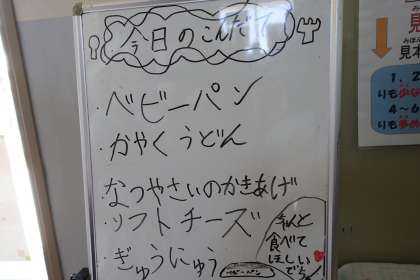 今日のこんだて
・ベビーパン
・かやくうどん
・なつやさいのかきあげ
・ソフトチーズ
・ぎゅうにゅう
食べて
ほしい
です
ベビーパン
見
見本
1、2
りも少な
4~6
りも多め